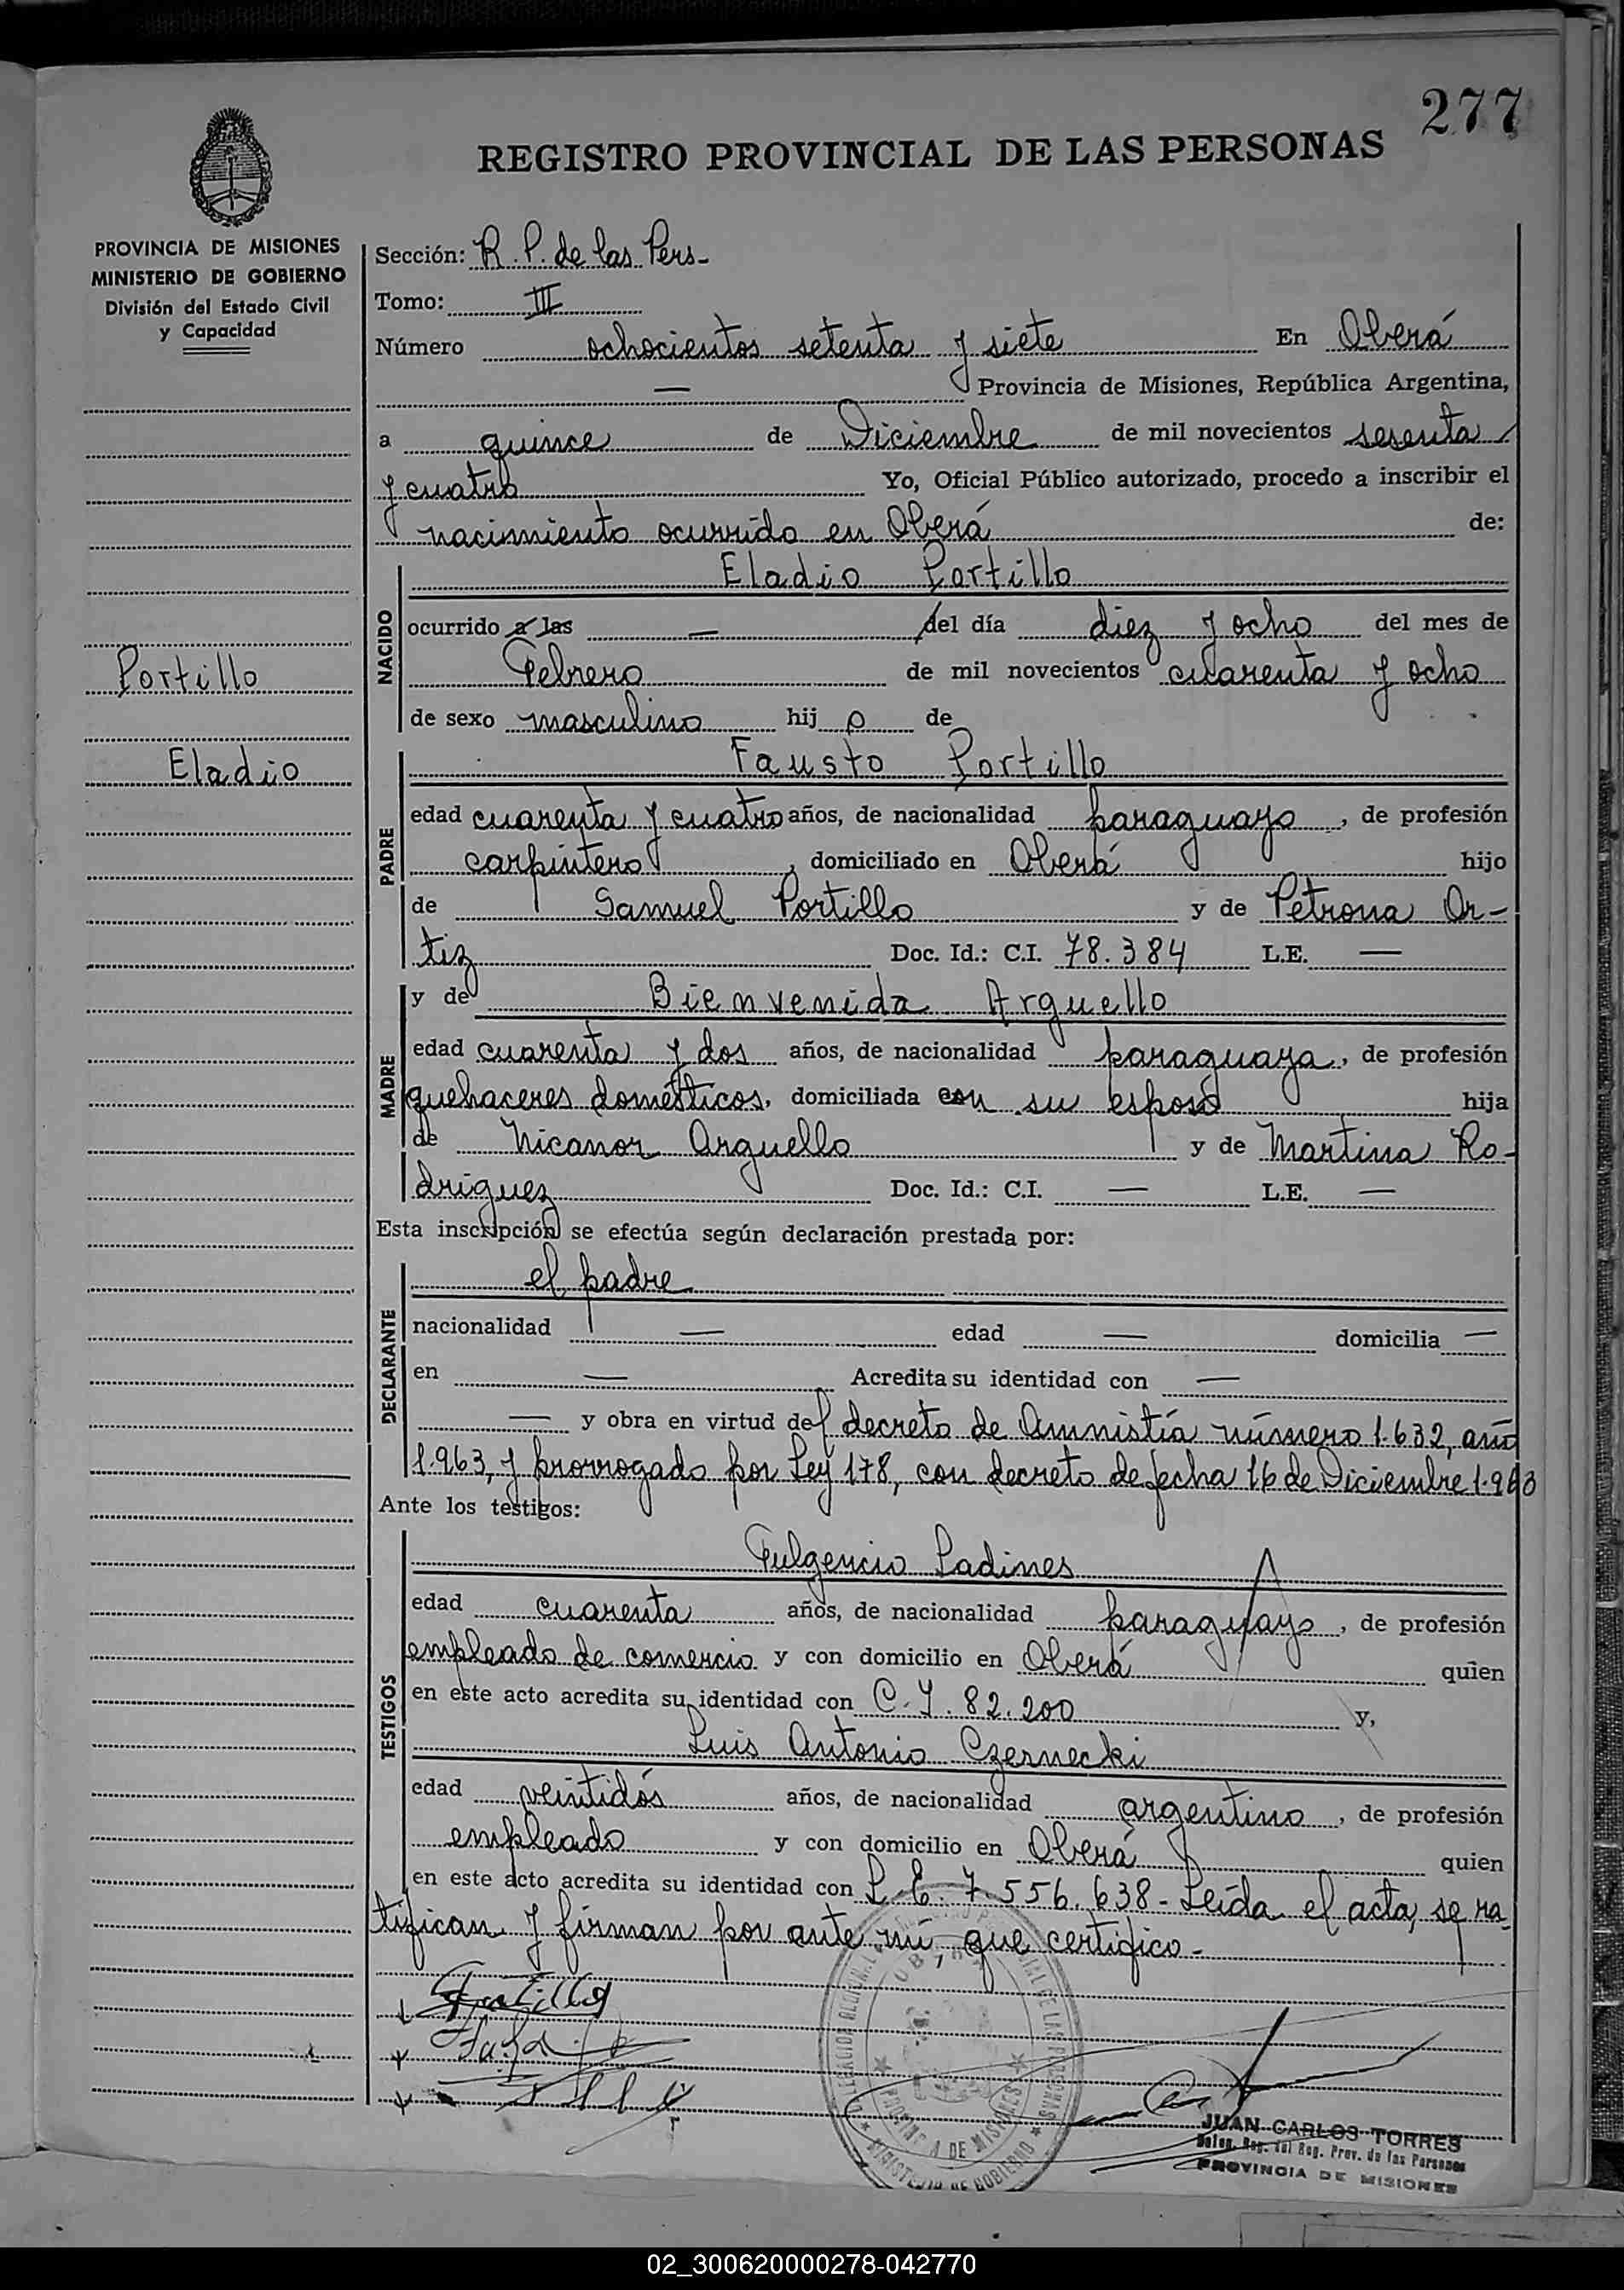 277
REGISTRO PROVINCIAL DE LAS PERSONAS
PROVINCIA DE MISIONES
MINISTERIO DE GOBIERNO
División del Estado Civil
y Capacidad
Portillo
Eladio
Sección: R. P. de las Pers-
Tomo: III
Número ochocientos setenta y siete En Oberá
— Provincia de Misiones, República Argentina,
a quince de Diciembre de mil novecientos sesenta
y cuatro Yo, Oficial Público autorizado, procedo a inscribir el
nacimiento ocurrido en Oberá de:
NACIDO
Eladio Portillo
ocurrido a las — del día diez y ocho del mes de
Febrero de mil novecientos cuarenta y ocho
de sexo masculino hij o de
PADRE
Fausto Portillo
edad cuarenta y cuatro años, de nacionalidad paraguayo, de profesión
carpintero, domiciliado en Oberá hijo
de Samuel Portillo y de Petrona Or-
tiz Doc. Id.: C.I. 78.384 L.E. —
MADRE
y de Bienvenida Arguello
edad cuarenta y dos años, de nacionalidad paraguaya, de profesión
quehaceres domésticos, domiciliada con su esposo hija
de Nicanor Arguello y de Martina Ro-
driguez Doc. Id.: C.I. — L.E. —
Esta inscripción se efectúa según declaración prestada por:
DECLARANTE
el padre
nacionalidad — edad — domicilia —
en — Acredita su identidad con —
— y obra en virtud del decreto de Amnistía número 1.632, año
1.963, y prorrogado por Ley 178, con decreto de fecha 16 de Diciembre 1.963
Ante los testigos:
TESTIGOS
Fulgencio Ladines
edad cuarenta años, de nacionalidad paraguayo, de profesión
empleado de comercio y con domicilio en Oberá quien
en este acto acredita su identidad con C.I. 82.200 y,
Luis Antonio Czernecki
edad veintidós años, de nacionalidad argentino, de profesión
empleado y con domicilio en Oberá quien
en este acto acredita su identidad con L. E. 7.556.638- Leída el acta, se ra-
tifican y firman por ante mí, que certifico-
Portillo
PROVINCIA DE MISIONES
MINISTERIO DE GOBIERNO
JUAN CARLOS TORRES
Deleg. Reg. del Reg. Prov. de las Personas
PROVINCIA DE MISIONES
02_300620000278-042770